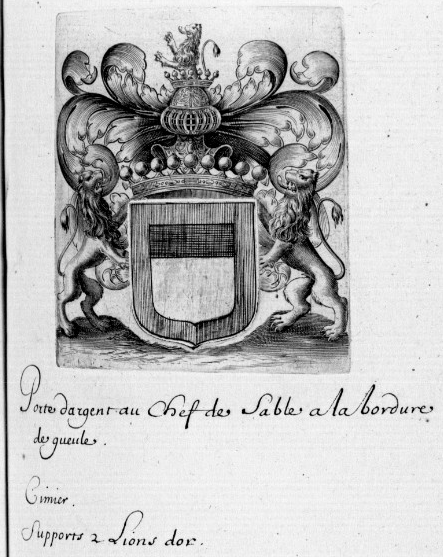 Porte dargent au Chef de Sable a la bordure
de gueule.
Cimier.
Supports 2 Lions dor.